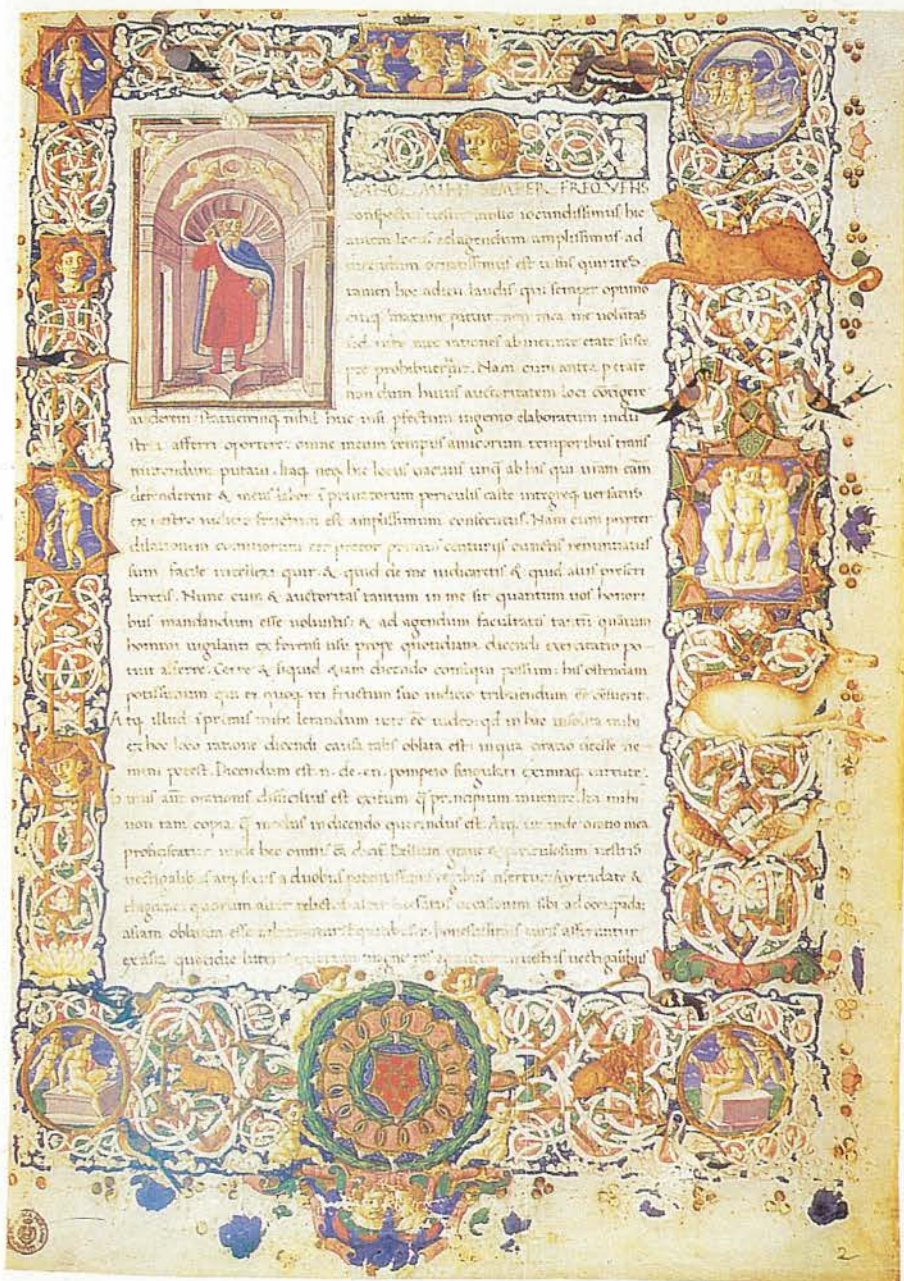 QVANQ MIHI SEMPER FREQVENS
conspectus uester multo iocundissimus hic
autem locus ad agendum amplissimus ad
dicendum ornatissimus est uisus quirites
tamen hoc aditu laudis qui semper optimo
cuiq maxime patuit non mea me uoluntas
sed uite mee rationes ab ineunte etate susce
pte prohibuerunt. Nam cum antea p etate
non dum huius auctoritatem loci cotigere
auderem statueremq nihil huc nisi pfectum ingenio elaboratum indu
stria afferri oportere: omne meum tempus amicorum temporibus trans
mittendum putaui. Itaq neq hic locus uacuus unq ab his qui uram cam
defenderent & meus labor i priuatorum periculis caste integreq uersatus
ex uestro iudicio fructum est amplissimum consecutus. Nam cum propter
dilationem comitiorum ter pretor primus centurijs cunctis renuntiatus
sum facile intellexi quir. & quid de me iudicaretis & quid alijs prescri
beretis. Nunc cum & auctoritas tantum in me sit quantum uos honori
bus mandandum esse uoluistis: & ad agendum facultatis tanti quatum
homini uigilanti ex forensi usu prope quotidiana dicendi exercitatio po
tuit afferre. Certe & siquid etiam dicendo consequi possum: his ostendam
potissimum qui ei quoq rei fructum suo iudicio tribuendum ee cesuerit.
Atq illud i primis mihi letandum iure ee uideo: qd in hac insolita mihi
ex hoc loco ratione dicendi causa talis oblata est: in qua oratio deesse ne
mini potest. Dicendum est .n. de .cn. pompeio singulari eximiaq uirtute.
huius aut orationis difficilius est exitum q principium inuenire. Ita mihi
non tam copia q modus in dicendo querendus est. Atq ut inde oratio mea
proficiscatur unde hec omnis ca ducit. Bellum graue & periculosum uestris
uectigalibus atq socijs a duobus potentissimis regibus infertur Mytridate &
tigrane: quorum alter relictus alter lacessitus occasionem sibi ad occupada
asiam oblatam esse arbitrantur Equitibus .r. honestissimis uiris afferuntur
ex asia quotidie littere quorum magne res aguntur in uestris uectigalibus
2